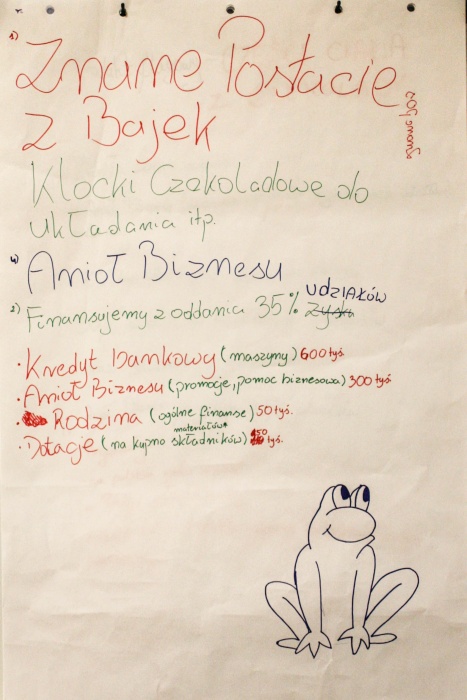 3) Znane Postacie
z Bajek
Klocki Czekoladowe do
układania itp.
4) Anioł Biznesu
5) Finansujemy z oddania 35% zysku udziałów
· Kredyt bankowy (maszyny) 600 tyś.
· Anioł Biznesu (promocje, pomoc biznesowa) 300 tyś.
· Rodzina (ogólne finanse) 50 tyś.
materiałów*
· Dotacje (na kupno składników) 50 tyś.